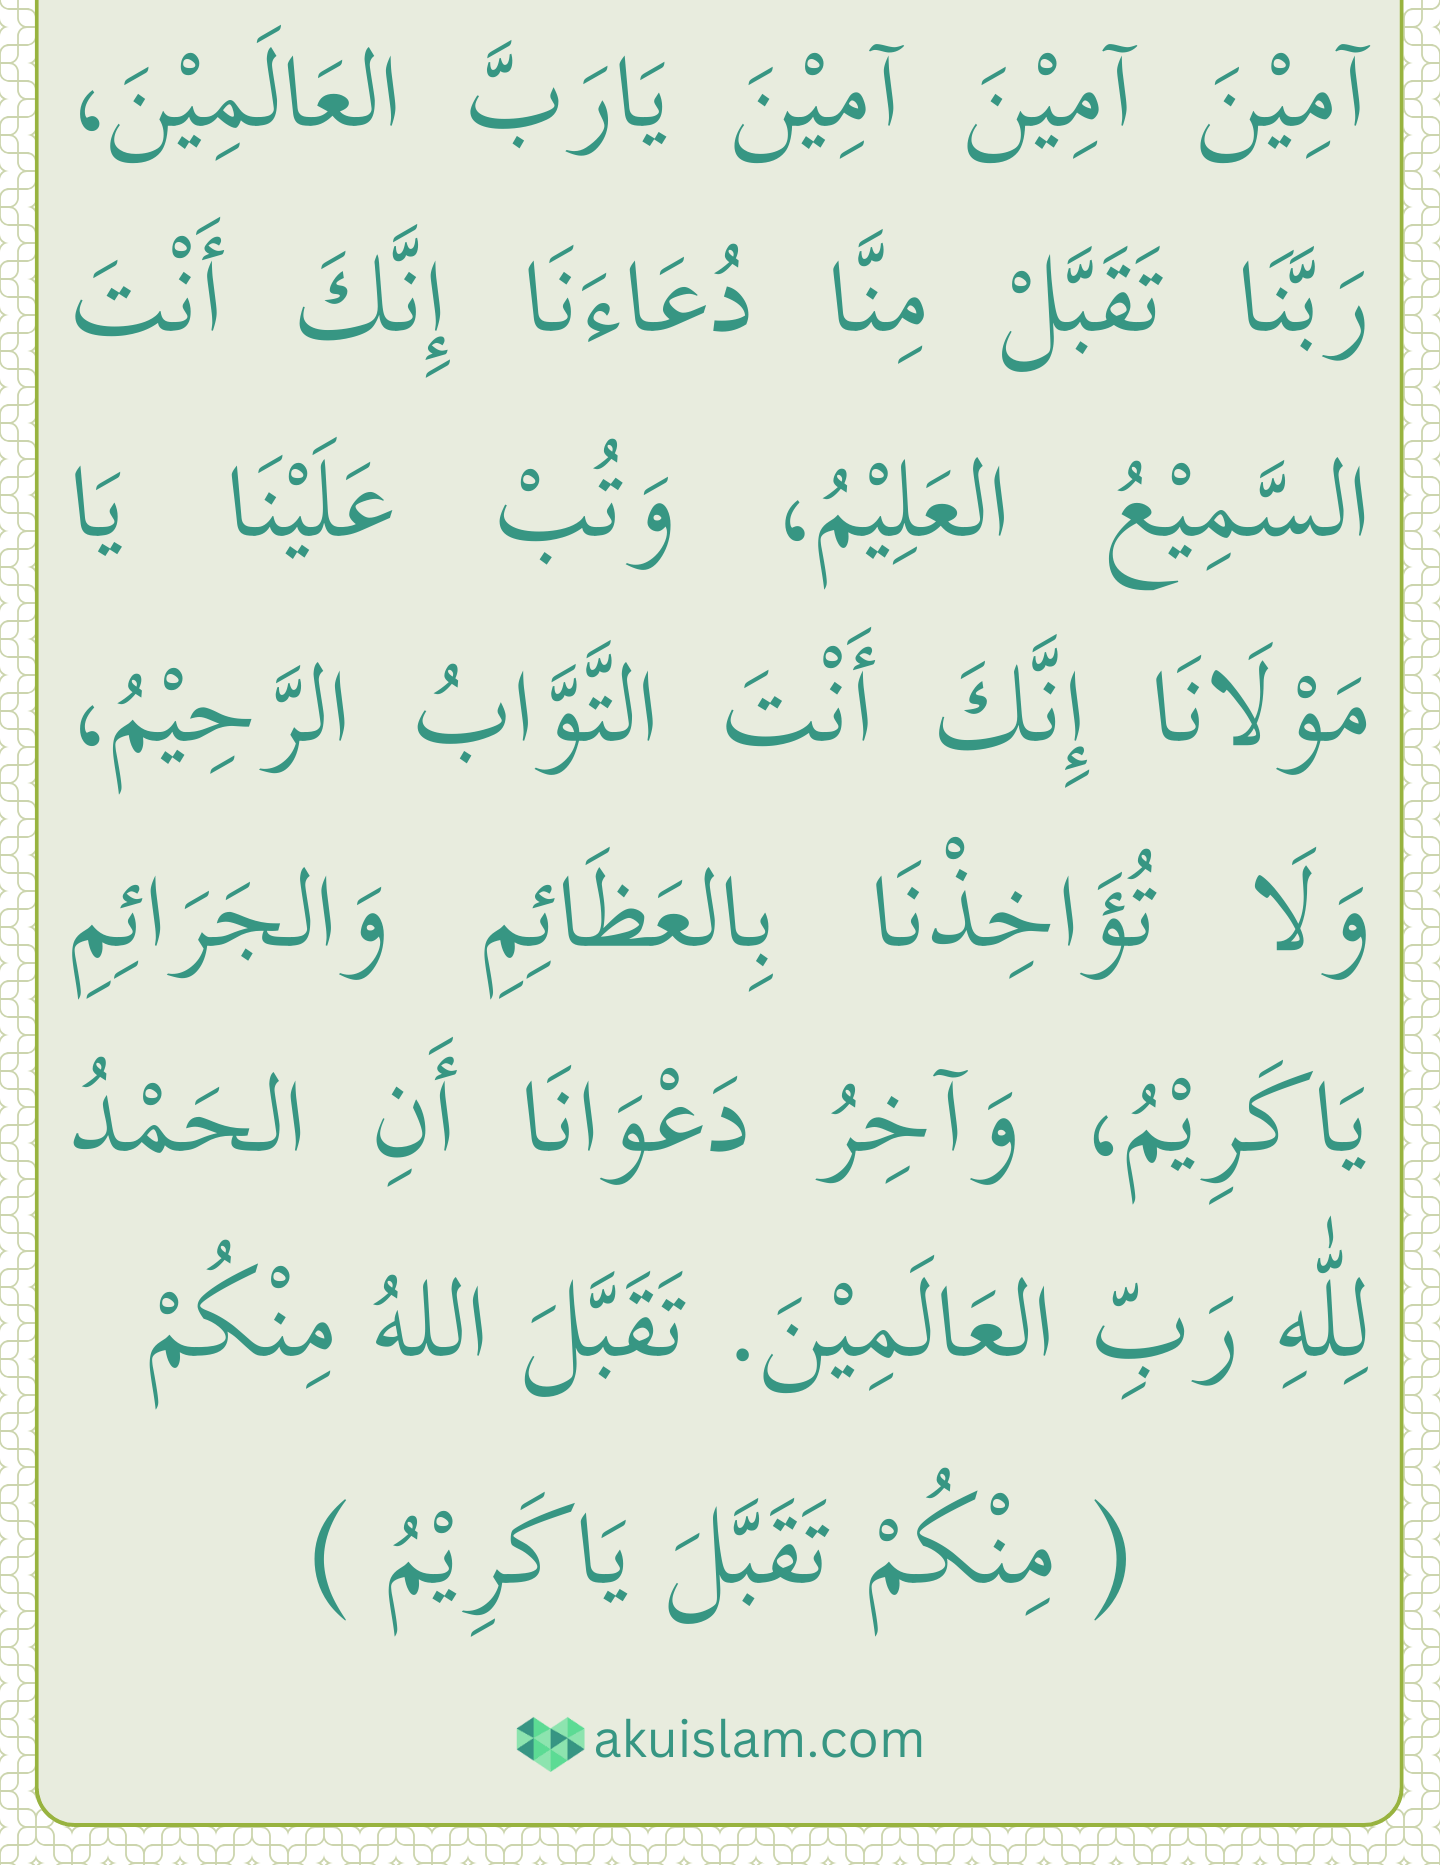 آمِيْنَ آمِيْنَ آمِيْنَ يَارَبَّ العَالَمِيْنَ،
رَبَّنَا تَقَبَّلْ مِنَّا دُعَاءَنَا إِنَّكَ أَنْتَ
السَّمِيْعُ العَلِيْمُ، وَتُبْ عَلَيْنَا يَا
مَوْلَانَا إِنَّكَ أَنْتَ التَّوَّابُ الرَّحِيْمُ،
وَلَا تُؤَاخِذْنَا بِالعَظَائِمِ وَالجَرَائِمِ
يَاكَرِيْمُ، وَآخِرُ دَعْوَانَا أَنِ الحَمْدُ
لِلّٰهِ رَبِّ العَالَمِيْنَ. تَقَبَّلَ اللهُ مِنْكُمْ
( مِنْكُمْ تَقَبَّلَ يَاكَرِيْمُ )
akuislam.com